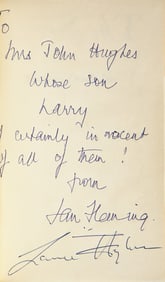 To
Mrs John Hughes
whose son
Larry
certainly innocent
of all of them!
from
Ian Fleming.